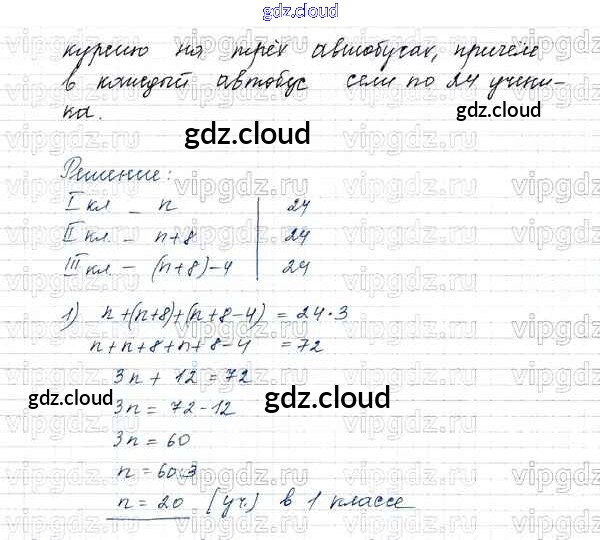 gdz.cloud
gdz.cloud
курсию на трёх автобусах, причём
в каждый автобус сели по 24 учени-
ка.
gdz.cloud
gdz.cloud
Решение:
I кл – n | 24
II кл. – n+8 | 24
III кл. – (n+8)–4 | 24
1) n+(n+8)+(n+8–4) = 24·3
n+n+8+n+8–4 = 72
3n + 12 = 72
gdz.cloud
gdz.cloud
3n = 72–12
3n = 60
n = 60:3
n = 20 (уч.) в 1 классе